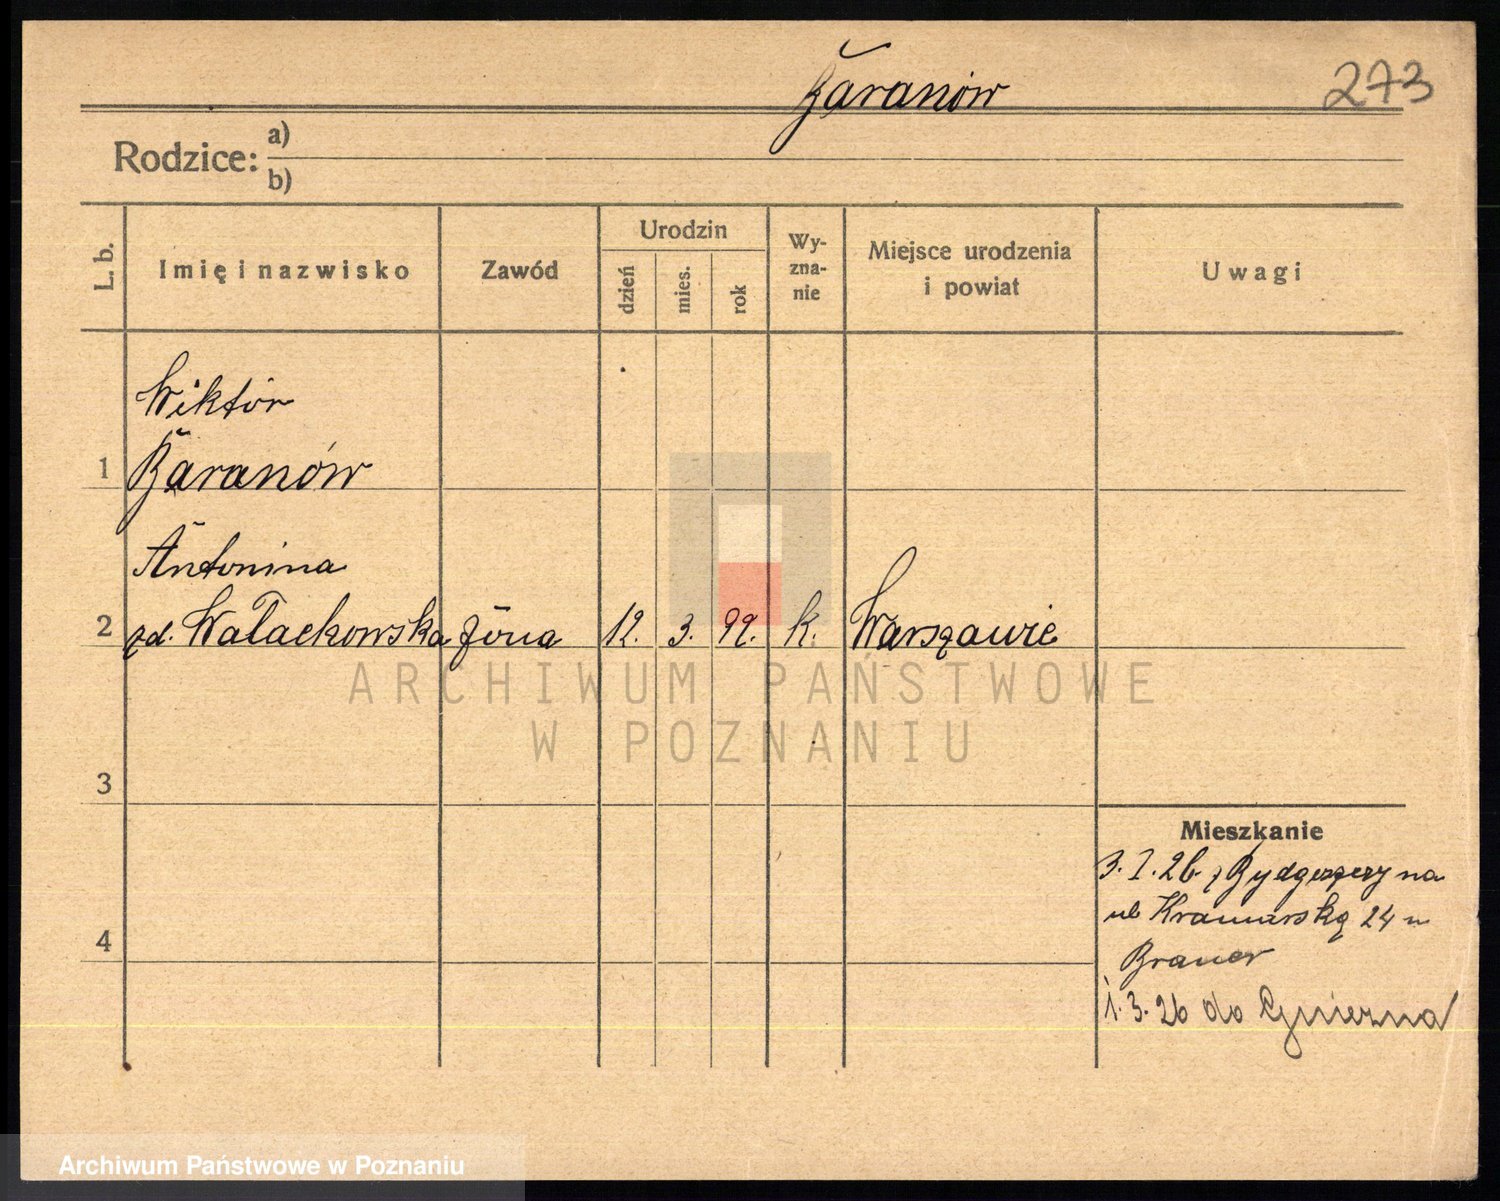 Baranów
273
Rodzice: a)
b)
L. b.
Imię i nazwisko
Zawód
Urodzin
dzień
mies.
rok
Wy-
zna-
nie
Miejsce urodzenia
i powiat
Uwagi
Wiktór
1 Baranów
Antonina
2 zd. Wałachowska żona 12. 3. 92. k. Warszawie
ARCHIWUM PAŃSTWOWE
W POZNANIU
3
4
Mieszkanie
3. I. 26. z Bydgoszczy na
ul Kramarską 24 u
Brauer
1. 3. 26 do Gniezna
Archiwum Państwowe w Poznaniu